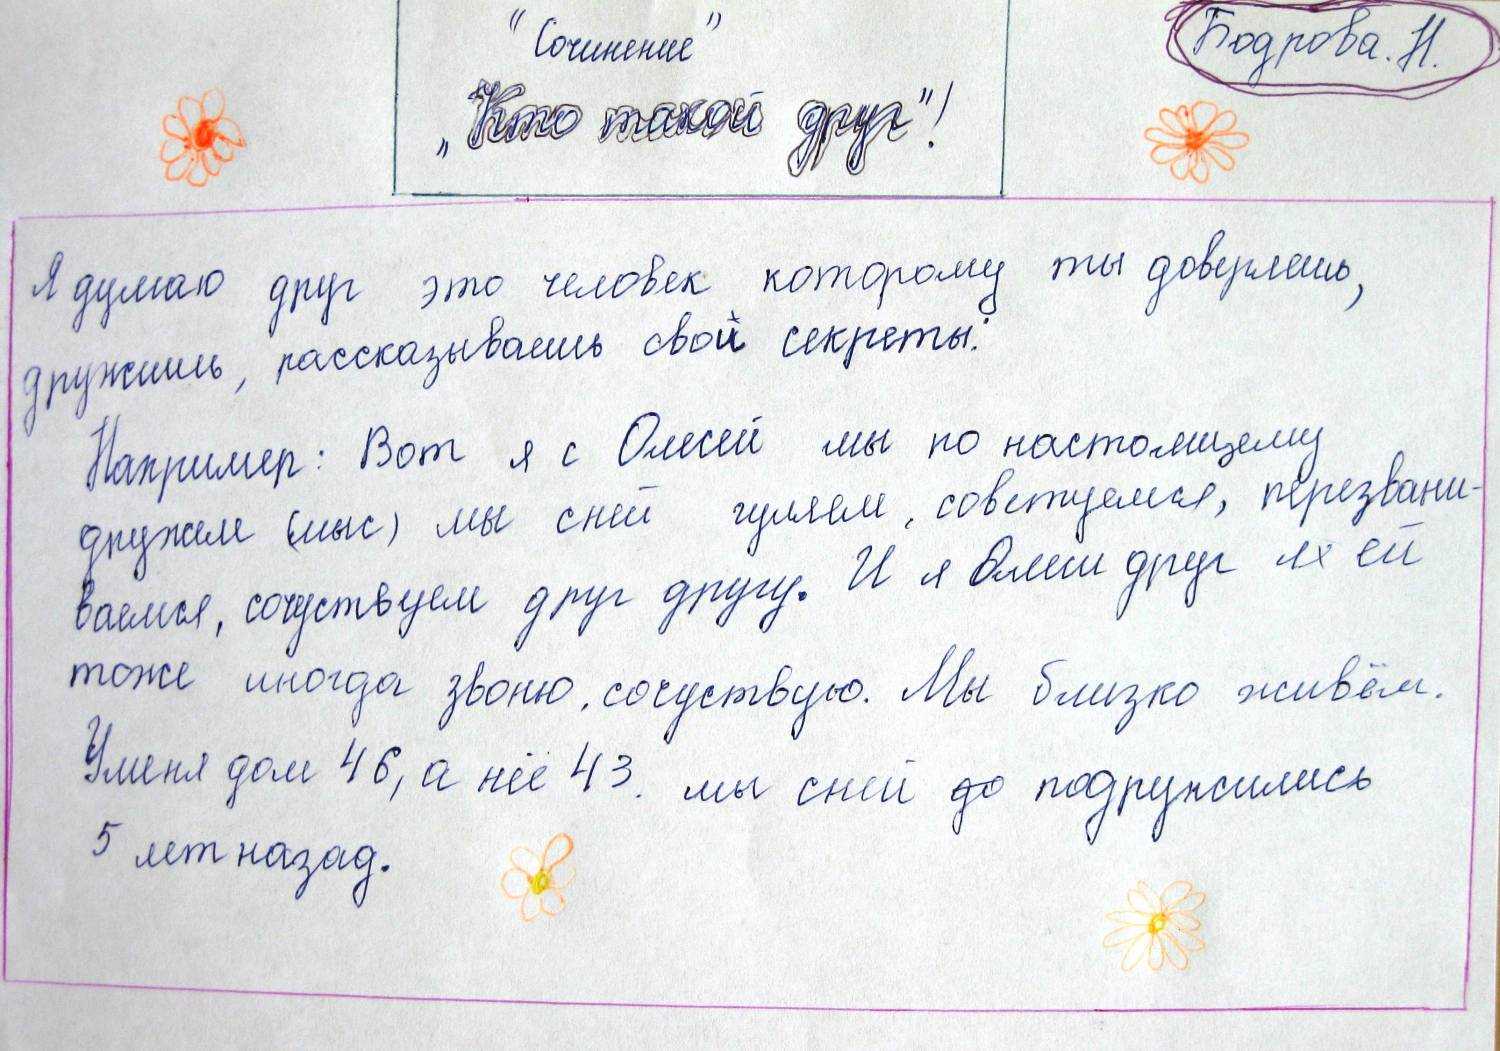 "Сочинение"
Бодрова. Н.
„Кто такой друг"!
Я думаю друг это человек которому ты доверяешь,
дружишь, рассказываешь свой секреты.
Например: Вот я с Олесей мы по настоящему
дружем (мыс) мы сней гуляем, советуемся, перезвани-
ваемся, сочуствуем друг другу. И я Олеси друг я ей
тоже иногда звоню, сочуствую. Мы близко живём.
Уменя дом 46, а неё 43. мы сней до подружились
5 лет назад.